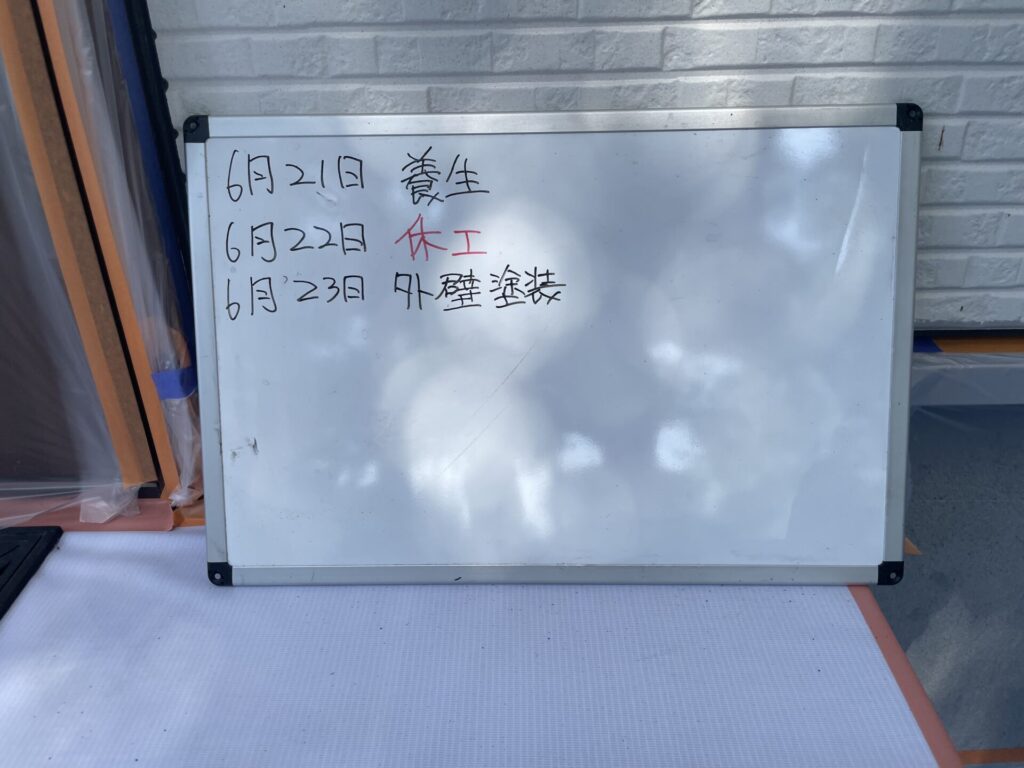 6月21日 養生
6月22日 休工
6月23日 外壁塗装